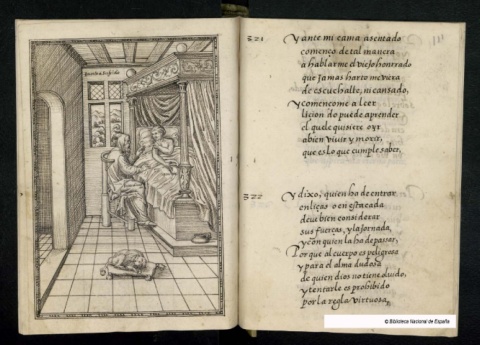 321
Y ante mi cama asentado
començo de tal manera
a hablarme el viejo honrrado
que jamas harto me viera
de escuchalle, ni cansado,
Y començome a leer
licion do puede aprender
el que le quisiere oyr
a bien vivir y morir,
que es lo que cumple saber,
322
Y dixo, quien ha de entrar
en liças o en estacada
deve bien considerar
sus fuerças, y la jornada,
y con quien la ha de passar,
Porque al cuerpo es peligroso
y para el alma dudoso
de quien dios no tiene olvido,
y tentarle es prohibido
por la regla virtuosa,
© Biblioteca Nacional de España